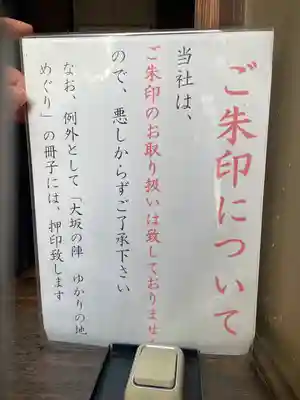 ご朱印について
当社は、
ご朱印のお取り扱いは致しておりません
ので、悪しからずご了承下さい
なお、例外として「大坂の陣 ゆかりの地
めぐり」の冊子には、押印致します